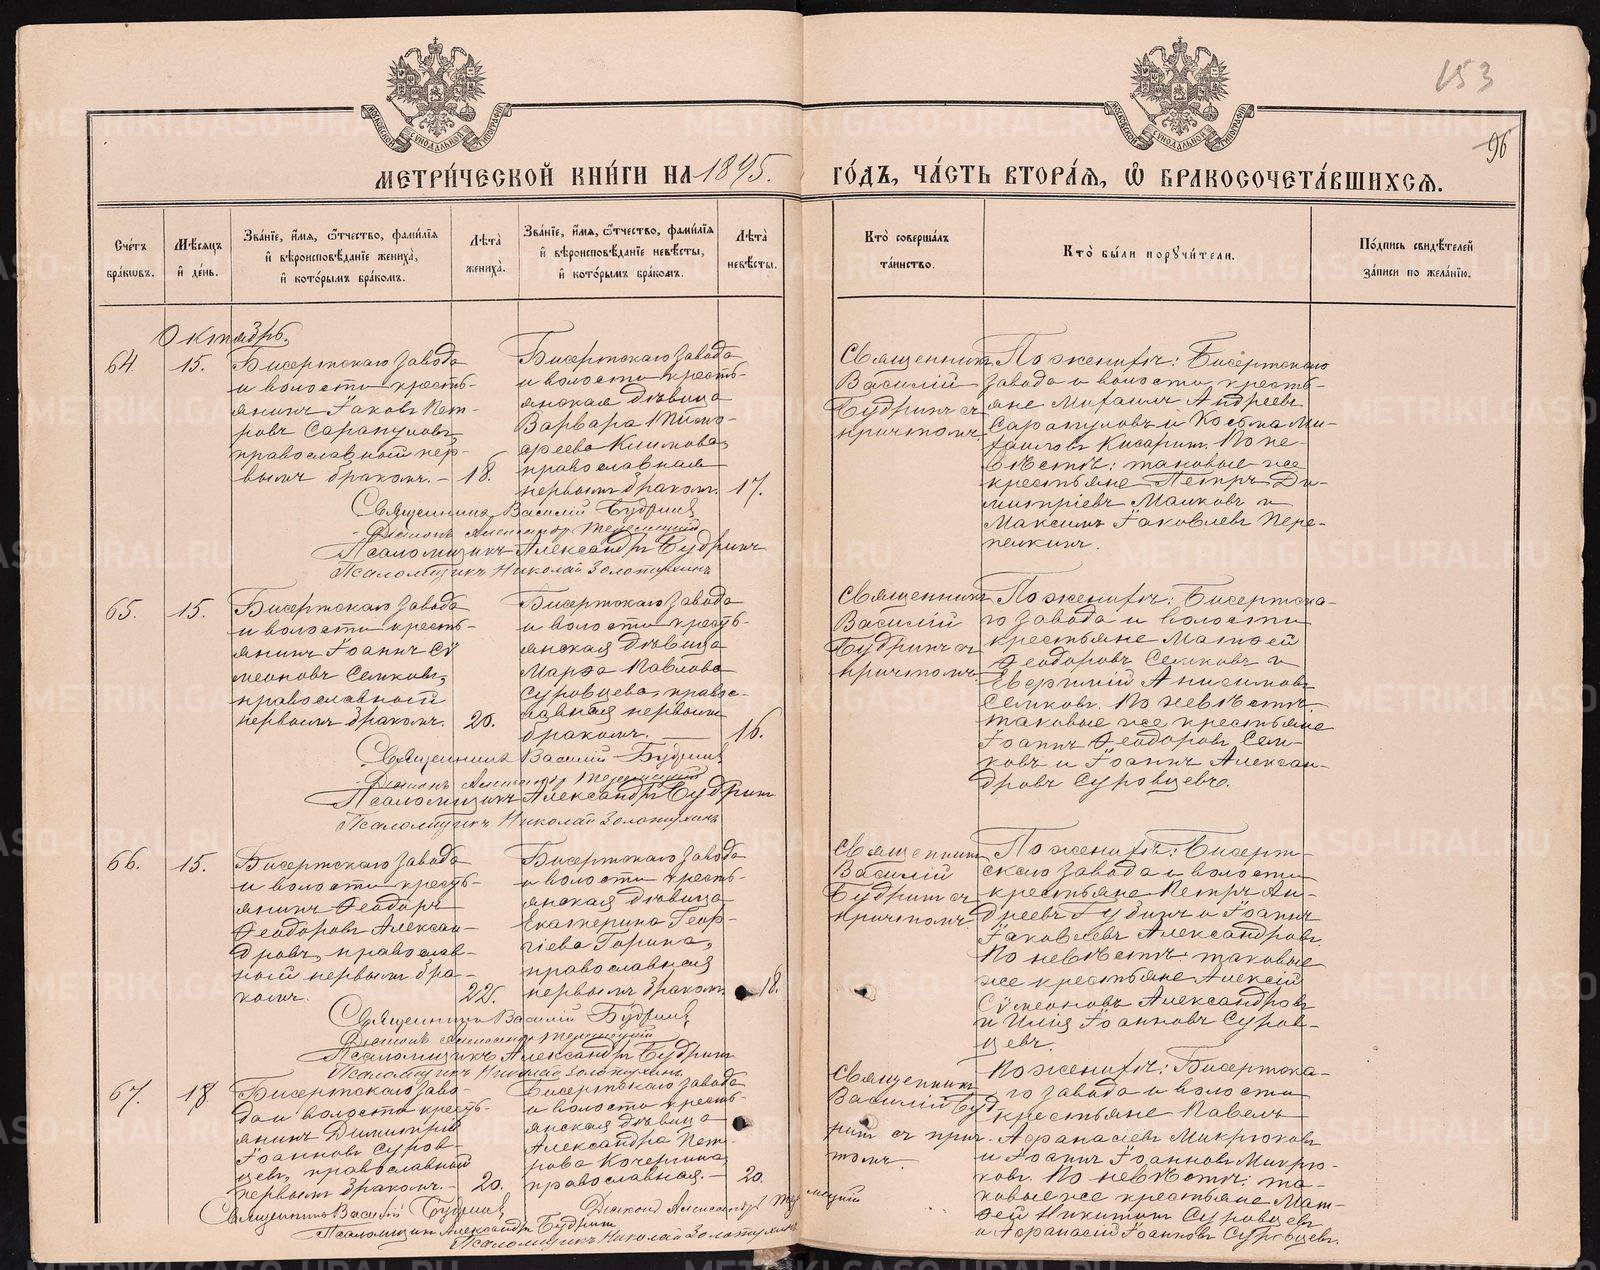 153
96
МЕТРИ́ЧЕСКОЙ КНИ́ГИ НА 1895. ГО́ДЪ, ЧА́СТЬ ВТОРА́Я, Ѡ БРАКОСОЧЕТА́ВШИХСЯ.
Сче́тъ бра́кѡвъ.
Мѣ́сяцъ и҆ де́нь.
Зва́нїе, и҆́мя, ѻ҆́тчество, фами́лїя
и҆ вѣроисповѣ́данїе жениха̀,
и҆ кото́рымъ бра́комъ.
Лѣ́та жениха̀.
Зва́нїе, и҆́мя, ѻ҆́тчество, фами́лїя
и҆ вѣроисповѣ́данїе невѣ́сты,
и҆ кото́рымъ бра́комъ.
Лѣ́та невѣ́сты.
Кто̀ соверша́лъ
та́инство.
Кто̀ бы́ли поручи́тели.
По́дпись свидѣ́телей
за́писи по жела́нїю.
Октябрь.
64
15.
Бисертскаго завода
и волости кресть-
янинъ Іаковъ Пет-
ровъ Сарапуловъ,
православный пер-
вымъ бракомъ. –
18.
Бисертскаго завода
и волости кресть-
янская дѣвица
Варвара Тимо-
феева Климова,
православная
первымъ бракомъ.
17.
Священникъ
Василій
Будринъ съ
причтомъ
По женихѣ: Бисертскаго
завода и волости кресть-
яне Михаилъ Андреевъ
Сарапуловъ и Косьма Ми-
хаиловъ Кисаринъ. По не-
вѣстѣ: таковые же
крестьяне Петръ Ди-
митріевъ Малковъ и
Максимъ Іаковлевъ Пере-
пелкинъ.
Священникъ Василій Будринъ
Діаконъ Александръ
Псаломщикъ Александръ Будринъ
Псаломщикъ Николай Золотухинъ
65.
15.
Бисертскаго завода
и волости кресть-
янинъ Іоаннъ Сѵ
меоновъ Селковъ,
православный
первымъ бракомъ.
20.
Бисертскаго завода
и волости кресть-
янская дѣвица
Марѳа Павлова
Суровцева, правос-
лавная первымъ
бракомъ. —
16.
Священникъ
Василій
Будринъ съ
причтомъ
По женихѣ: Бисертска-
го завода и волости
крестьяне Матѳей
Ѳеодоровъ Селковъ и
Евѳимій Анисимовъ
Селковъ. По невѣстѣ:
таковые же крестьяне
Іоаннъ Ѳеодоровъ Сел-
ковъ и Іоаннъ Алексан-
дровъ Суровцевъ.
Священникъ Василій Будринъ
Діаконъ Александръ
Псаломщикъ Александръ Будринъ
Псаломщикъ Николай Золотухинъ
66.
15.
Бисертскаго завода
и волости кресть-
янинъ Ѳеодоръ
Ѳеодоровъ Алексан-
дровъ, православ-
ный первымъ бра-
комъ.
22.
Бисертскаго завода
и волости кресть-
янская дѣвица
Екатерина Геор-
гіева Горина,
православная
первымъ бракомъ
18.
Священникъ
Василій
Будринъ съ
причтомъ.
По женихѣ: Бисерт-
скаго завода и волости
крестьяне Петръ Ан-
дреевъ Гудинъ и Іоаннъ
Іаковлевъ Александровъ.
По невѣстѣ: таковые
же крестьяне Алексій
Сѵмеоновъ Александровъ
и Илія Іоанновъ Суров-
цевъ.
Священникъ Василій Будринъ
Діаконъ Александръ
Псаломщикъ Александръ Будринъ
Псаломщикъ Николай Золотухинъ
67.
18
Бисертскаго заво-
да и волости кресть-
янинъ Димитрій
Іоанновъ Суров
цевъ, православный
первымъ бракомъ. –
20.
Бисертскаго завода
и волости кресть-
янская дѣвица
Александра Пет-
рова Кочергина
православная. –
20.
Священникъ
Василій Буд
ринъ съ прич-
томъ.
По женихѣ: Бисертска-
го завода и волости
крестьяне Павелъ
Аѳанасіевъ Микрюковъ
и Іоаннъ Іоанновъ Микрю-
ковъ. По невѣстѣ: та-
ковые же крестьяне Мат-
ѳей Никитинъ Суровцевъ
и Аѳанасій Іоанновъ Суровцевъ.
Священникъ Василій Будринъ
Діаконъ Александръ
Псаломщикъ Александръ Будринъ
Псаломщикъ Николай Золотухинъ
METRIKI.GASO-URAL.RU